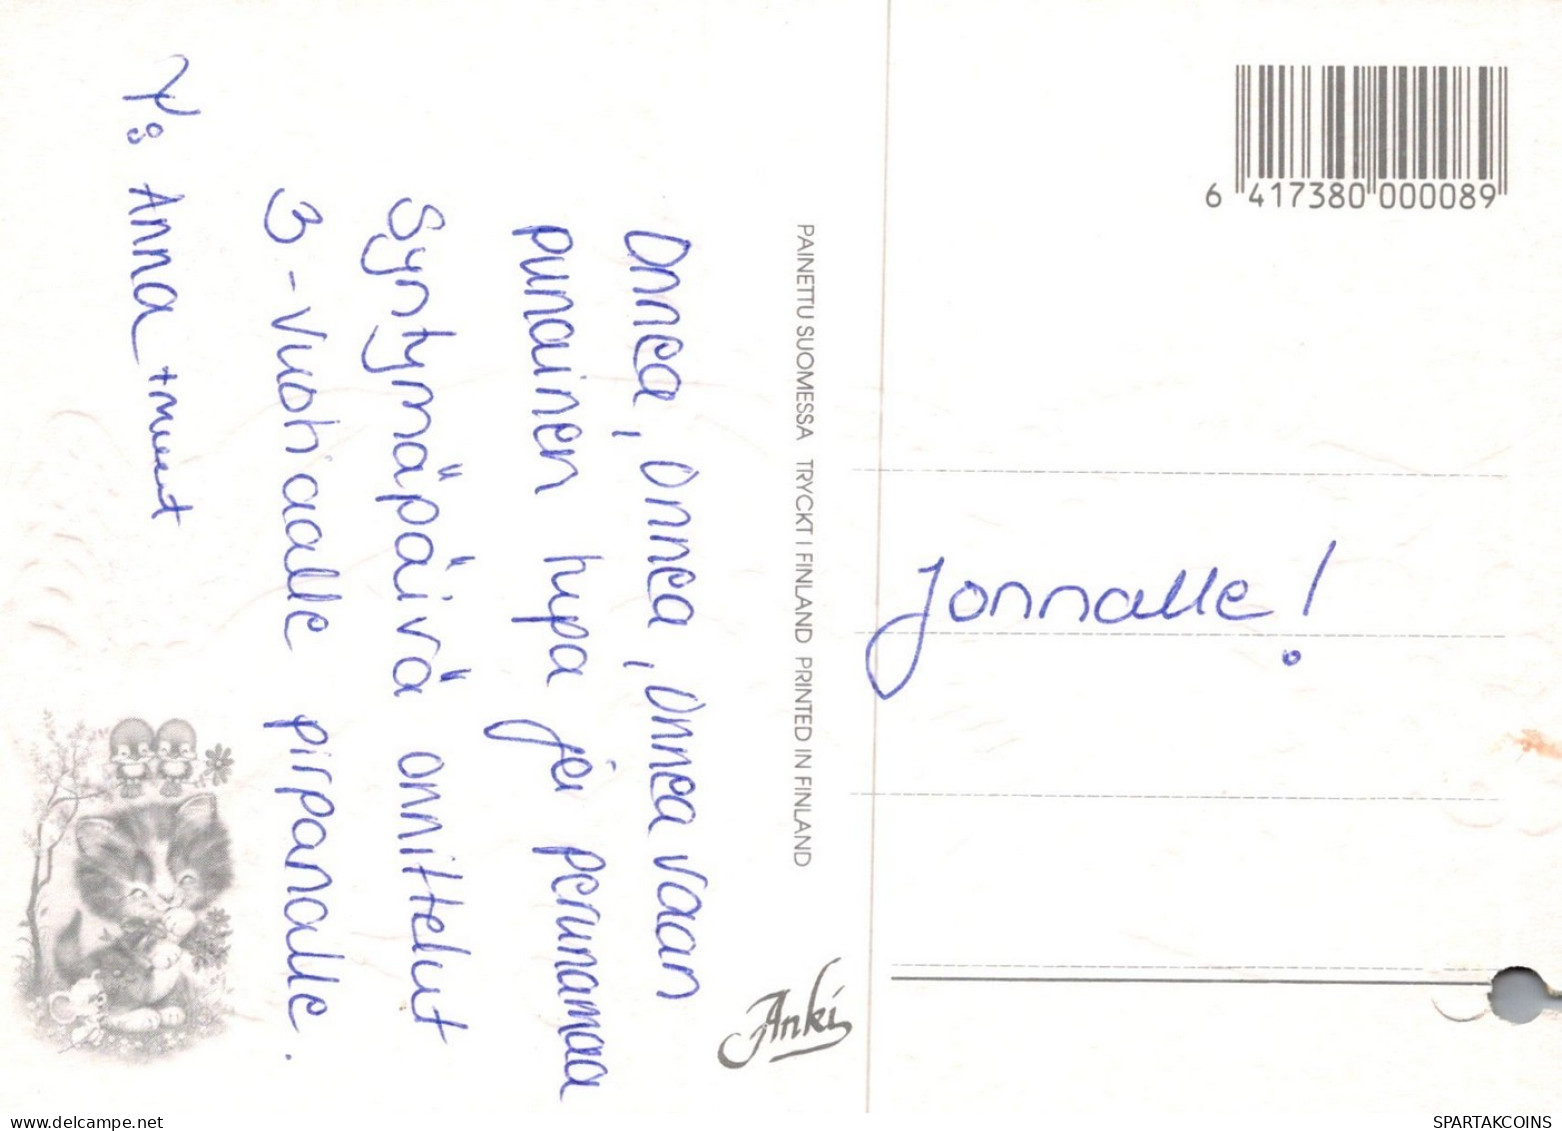 Onnea, onnea, onnea vaan
punainen tupa ja perunamaa
Syntymäpäivä onnittelut
3-vuotiaalle pirpanalle.
T: Anna + muut
Jonnalle!
PAINETTU SUOMESSA TRYCKT I FINLAND PRINTED IN FINLAND
Anki
6 417380 000089
SPARTAKCOINS